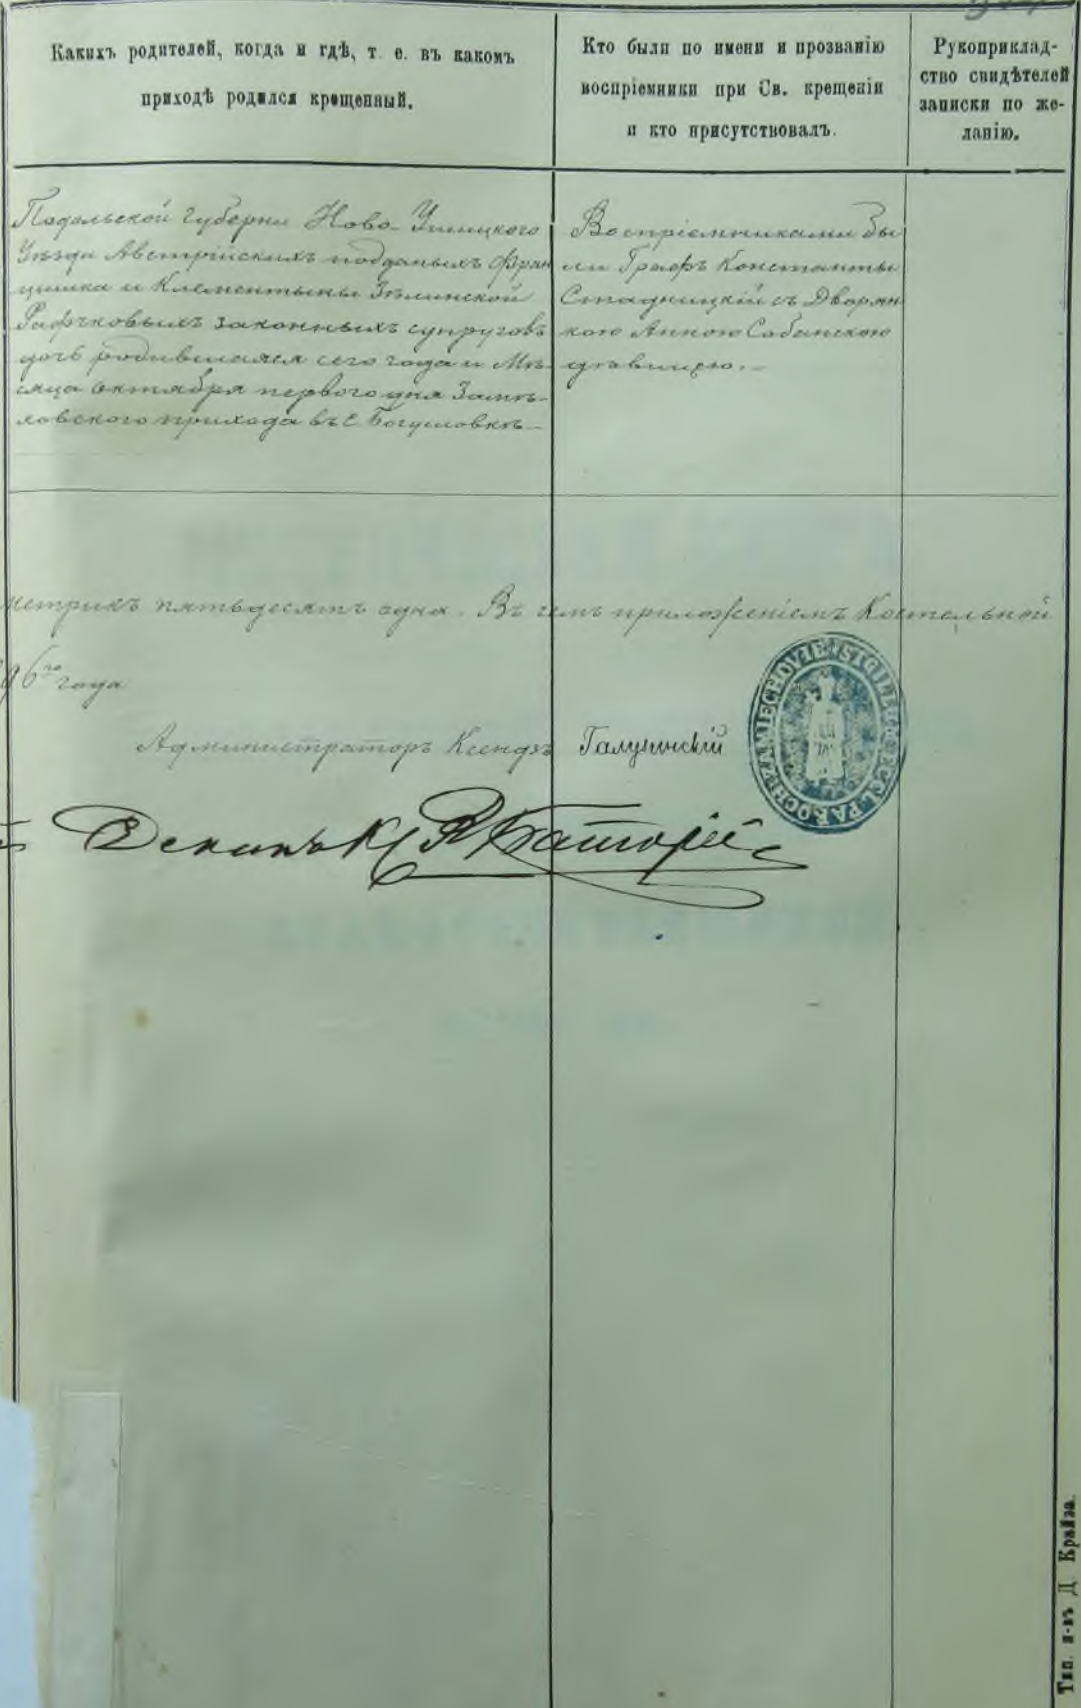 Какихъ родителей, когда и гдѣ, т. е. въ какомъ
приходѣ родился крещенный.
Кто были по имени и прозванію
воспріемники при Св. крещеніи
и кто присутствовалъ.
Рукоприклад-
ство свидѣтелей
записки по же-
ланію.
Подольской губерни Ново-Ушицкого
Уѣзда Австрійскихъ подданыхъ Фран
цишка и Клементыны Зѣлинской
законныхъ супруговъ
дочь родившаяся сего года и Мѣ-
сяца октября первого дня Замѣ-
ховского прихода въ с.
Воспріемниками бы
ли Графъ Константы
Стадницкій съ Дворян
кою Анною Собанскою
дѣвицею.
метрикъ пятьдесятъ одна. Въ чемъ приложеніемъ Костельной
96го года
Администраторъ Ксендзъ
Деканъ К
SIGILLUM ECCL. PAROCH. ZAMIECHOVIEN
Тип. н-въ Д. Крайза.